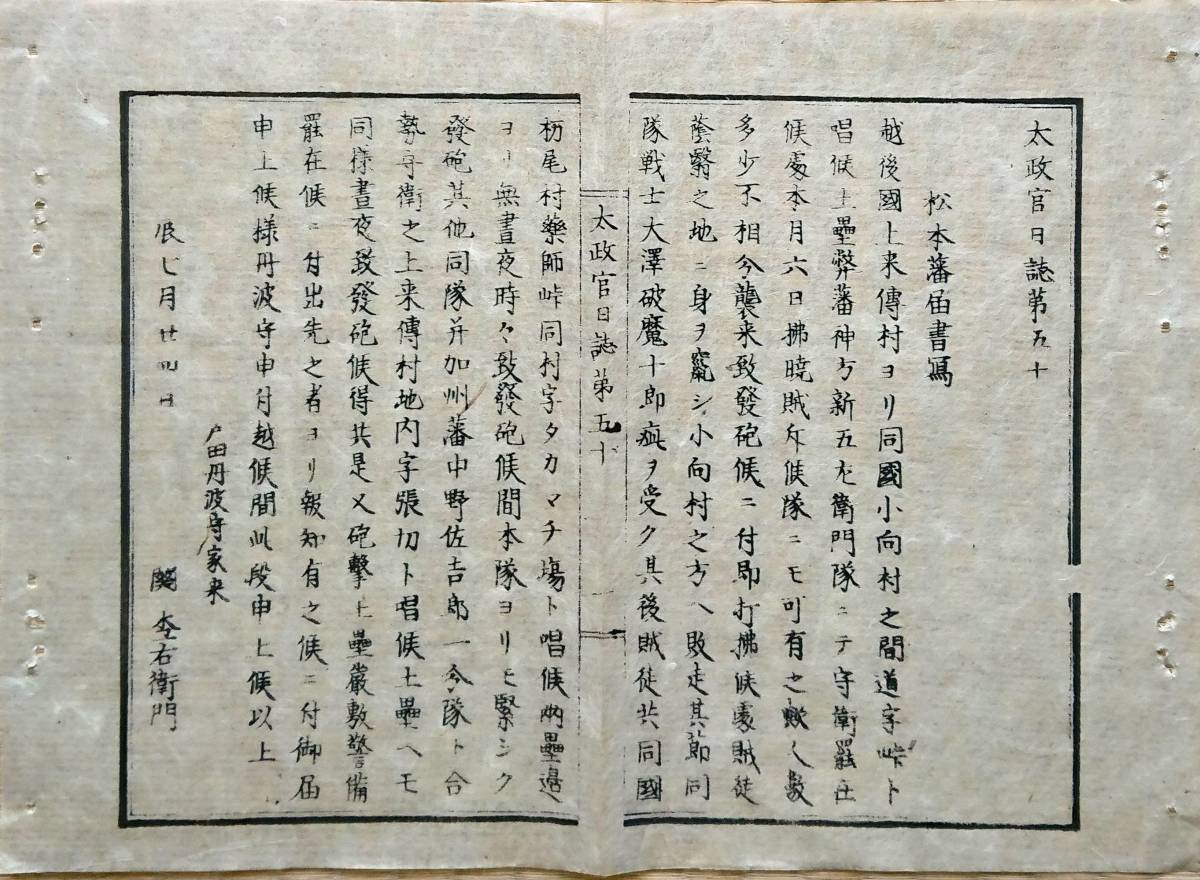 太政官日誌第五十
松本藩届書寫
越後國上来傳村ヨリ同國小向村之間道字峠ト
唱候土壘弊藩神方新五左衛門隊ニテ守衛罷在
候處本月六日拂曉賊斥候隊ニモ可有之歟人數
多少不相分襲来致發砲候ニ付即打拂候處賊徒
蔭翳之地ニ身ヲ竄シ小向村之方ヘ敗走其節同
隊戦士大澤破魔十郎疵ヲ受ク其後賊徒共同國
太政官日誌第五十
栃尾村藥師峠同村字タカマチ場ト唱候兩壘邊
ヨリ無晝夜時々致發砲候間本隊ヨリモ緊シク
發砲其他同隊并加州藩中野佐吉郎一分隊ト合
勢守衛之上来傳村地内字張切ト唱候土壘ヘモ
同様晝夜致發砲候得共是又砲擊土壘嚴敷警備
罷在候ニ付出先之者ヨリ報知有之候ニ付御届
申上候様丹波守申付越候間此段申上候以上
戸田丹波守家来
辰七月廿四日 関 右衛門